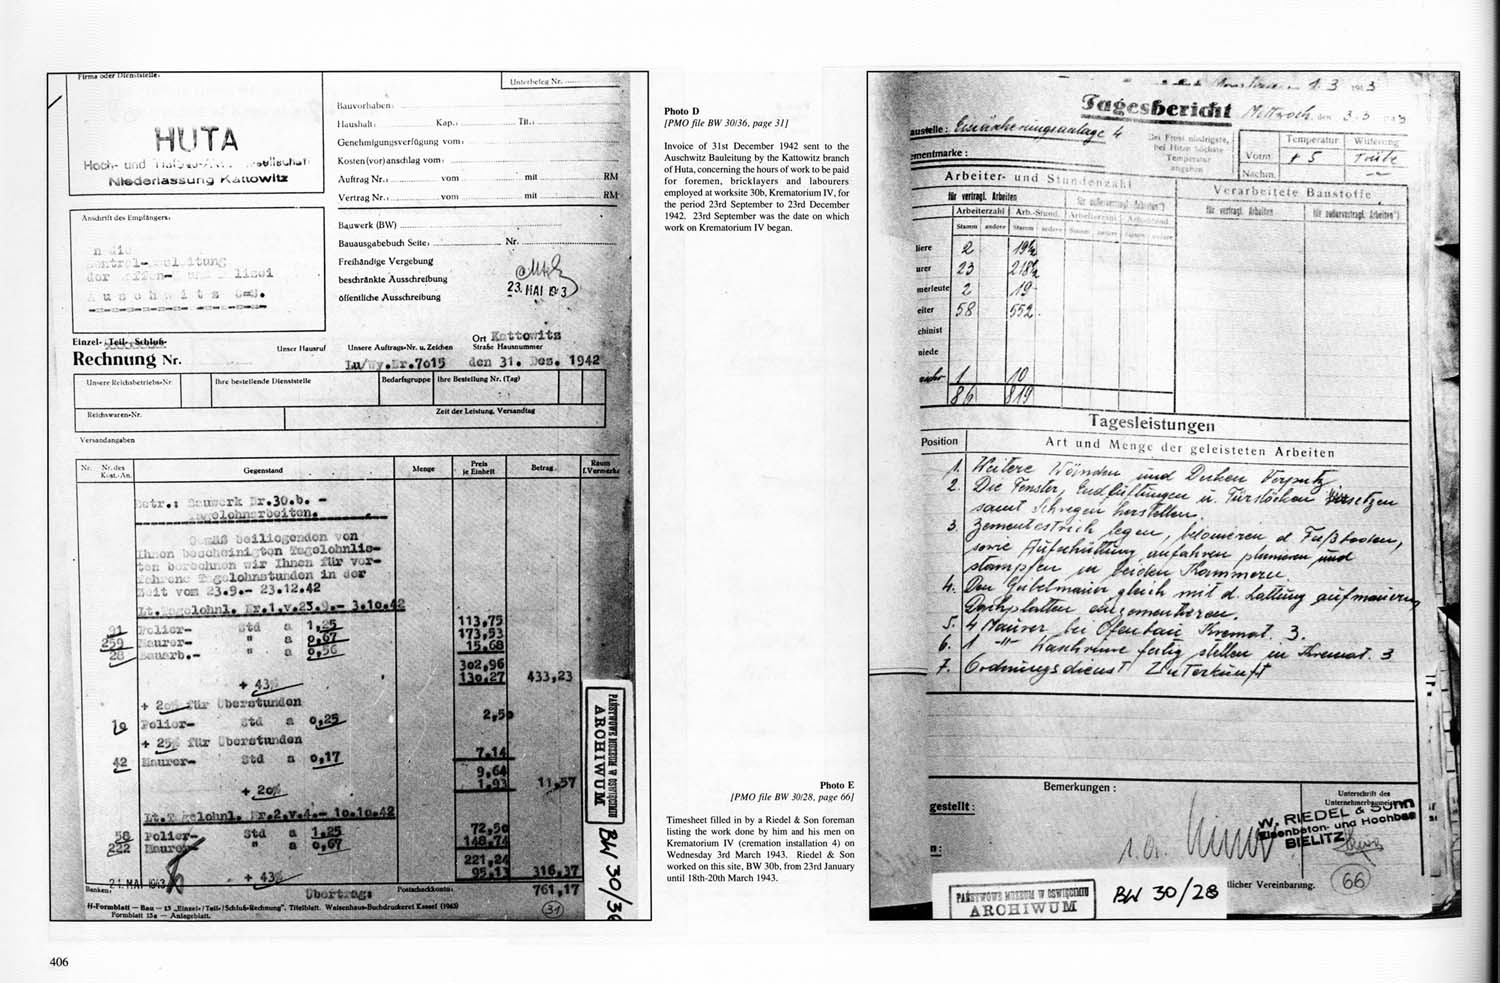 Firma oder Dienststelle:
Unterbeleg Nr.
HUTA
Hoch- und
Niederlassung Kattowitz
Bauvorhaben:
Haushalt: Kap.: Tit.:
Genehmigungsverfügung vom:
Kosten(vor)anschlag vom:
Auftrag Nr.: vom mit RM
Vertrag Nr.: vom mit RM
Anschrift des Empfängers:
Bauwerk (BW)
Bauausgabebuch Seite: Nr.
Freihändige Vergebung
beschränkte Ausschreibung
öffentliche Ausschreibung
23. MAI 1943
n die
der
Auschwitz
Einzel- Teil- Schluß-
Rechnung Nr.
Unser Hausruf
Unsere Auftrags-Nr. u. Zeichen
Ort Kattowitz
Straße Hausnummer
Lu/Wy.Nr.7015 den 31. Dez. 1942
Unsere Reichsbetriebs-Nr.
Ihre bestellende Dienststelle
Bedarfsgruppe
Ihre Bestellung Nr. (Tag)
Reichswaren-Nr.
Zeit der Leistung, Versandtag
Versandangaben
Nr. Nr. des Kost.-An. Gegenstand Menge Preis je Einheit Betrag Raum f. Vermerke
Betr.: Bauwerk Nr.30.b. -
Tagelohnarbeiten.
Gemäß beiliegenden von
Ihnen bescheinigten Tagelohnlis-
ten berechnen wir Ihnen für ver-
fahrene Tagelohnstunden in der
Zeit vom 23.9.- 23.12.42
Lt.Tagelohnl. Nr.1.v.23.9.- 3.10.42
91 Polier- Std a 1,25 113,75
259 Maurer- " a 0,67 173,53
28 Bauarb.- " a 0,56 15,68
302,96
+ 43% 130,27 433,23
+ 20% für Überstunden
10 Polier- Std a 0,25 2,50
+ 25% für Überstunden
42 Maurer- Std a 0,17 7,14
9,64
+ 20% 1,93 11,57
Lt.Tagelohnl. Nr.2.v.4.- 10.10.42
58 Polier- Std a 1.25 72,50
222 Maurer- " a 0,67 148,74
221,24
+ 43% 95,13 316,37
Banken: 21. MAI 1943 Übertrag: Postscheckkonto: 761,17
Formblatt — Bau — 13 „Einzel-/Teil-/Schluß-Rechnung“. Titelblatt. Waisenhaus-Buchdruckerei Kassel (1943)
Formblatt 13a — Anlageblatt.
31
PAŃSTWOWE MUZEUM W OŚWIĘCIMIU
ARCHIWUM
BW 30/36
406
Photo D
[PMO file BW 30/36, page 31]
Invoice of 31st December 1942 sent to the
Auschwitz Bauleitung by the Kattowitz branch
of Huta, concerning the hours of work to be paid
for foremen, bricklayers and labourers
employed at worksite 30b, Krematorium IV, for
the period 23rd September to 23rd December
1942. 23rd September was the date on which
work on Krematorium IV began.
Photo E
[PMO file BW 30/28, page 66]
Timesheet filled in by a Riedel & Son foreman
listing the work done by him and his men on
Krematorium IV (cremation installation 4) on
Wednesday 3rd March 1943. Riedel & Son
worked on this site, BW 30b, from 23rd January
until 18th-20th March 1943.
Tagesbericht Mittwoch den 3.3. 1943
austelle: Einäscherungsanlage 4
ementmarke:
Bei Frost niedrigste,
bei Hitze höchste
Temperatur
angeben
Temperatur Witterung
Vorm. + 5 Trübe
Nachm.
Arbeiter- und Stundenzahl
Verarbeitete Baustoffe
für vertragl. Arbeiten für außervertragl. Arbeiten*)
für vertragl. Arbeiten für außervertragl. Arbeiten*)
Arbeiterzahl Arb.-Stund. Arbeiterzahl
Stamm andere Stamm andere Stamm andere Stamm andere
liere 2 19½
urer 23 218½
merleute 2 19
eiter 58 552
chinist
niede
1 10
86 819
Tagesleistungen
Position Art und Menge der geleisteten Arbeiten
1. Weitere Wänden und Decken Verputz
2. Die Fenster, Entlüftungen u. Türstöcken versetzen
samt Schregen herstellen.
3. Zementestrich legen, betonieren d. Fußboden,
sowie Aufschüttung anfahren planieren und
stampfen in beiden Kammern.
4. Den Giebelmauer gleich mit d. Lattung aufmauern
Dachplatten einzementieren.
5. 4 Maurer bei Ofenbau Kremat. 3.
6. 1 -"- fertig stellen in Kremat. 3
7. Ordnungsdienst Unterkunft
Bemerkungen:
gestellt:
Unterschrift des
Unternehmerbaumeisters
W. RIEDEL & SOHN
Eisenbeton- und Hochbau
BIELITZ
tlicher Vereinbarung.
66
PAŃSTWOWE MUZEUM W OŚWIĘCIMIU
ARCHIWUM
BW 30/28